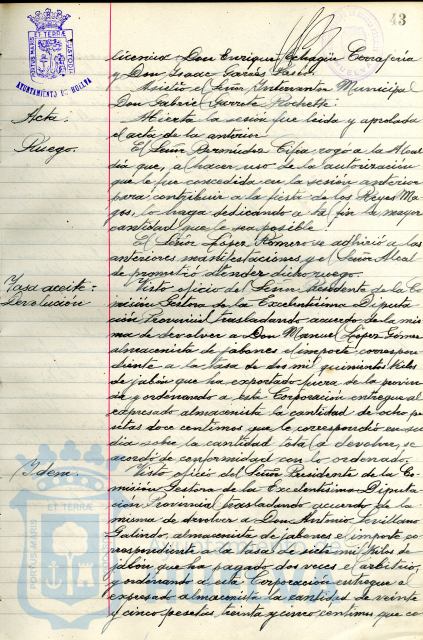 43
PORTUS MARIS ET TERRAE CUSTODIA
AYUNTAMIENTO DE HUELVA
licencia Don Enrique Echagüe
y Don Isaac Garcés
Asistió el Señor Interventor Municipal
Don Gabriel Garrote
Acta.
Abierta la sesión fué leida y aprobada
el acta de la anterior.
Ruego.
El Señor Bermúdez rogó a la Alcal
día que, al hacer uso de la autorización
que le fué concedida en la sesión anterior
para contribuir a la fiesta de los Reyes Ma-
gos, lo haga dedicando a tal fin la mayor
cantidad que le sea posible.
El Señor López Romero se adhirió a las
anteriores manifestaciones, y el Señor Alcal
de prometió atender dicho ruego.
Tasa aceite.-
Devolución
Visto oficio del Señor Presidente de la Co
misión Gestora de la Excelentísima Diputa
ción Provincial trasladando acuerdo de la mis
ma de devolver a Don Manuel López Gómez
almacenista de jabones el importe correspon-
diente a la tasa de dos mil quinientos kilos
de jabón que ha exportado fuera de la provin
cia y ordenando a esta Corporación entregue al
expresado almacenista la cantidad de ocho pe
setas doce centimos que le correspondió en su
día sobre la cantidad total a devolver, se
acordó de conformidad con lo ordenado.
Idem.
Visto oficio del Señor Presidente de la Co
misión Gestora de la Excelentísima Diputa
ción Provincial trasladando acuerdo de la
misma de devolver a Don Antonio Sevillano
Galindo, almacenista de jabones el importe co
rrespondiente a la tasa de siete mil kilos de
jabón que ha pagado dos veces el arbitrio,
y ordenando a esta Corporación entregue al
expresado almacenista la cantidad de veinte
y cinco pesetas, treinta y cinco céntimos que co
PORTUS MARIS ET TERRAE